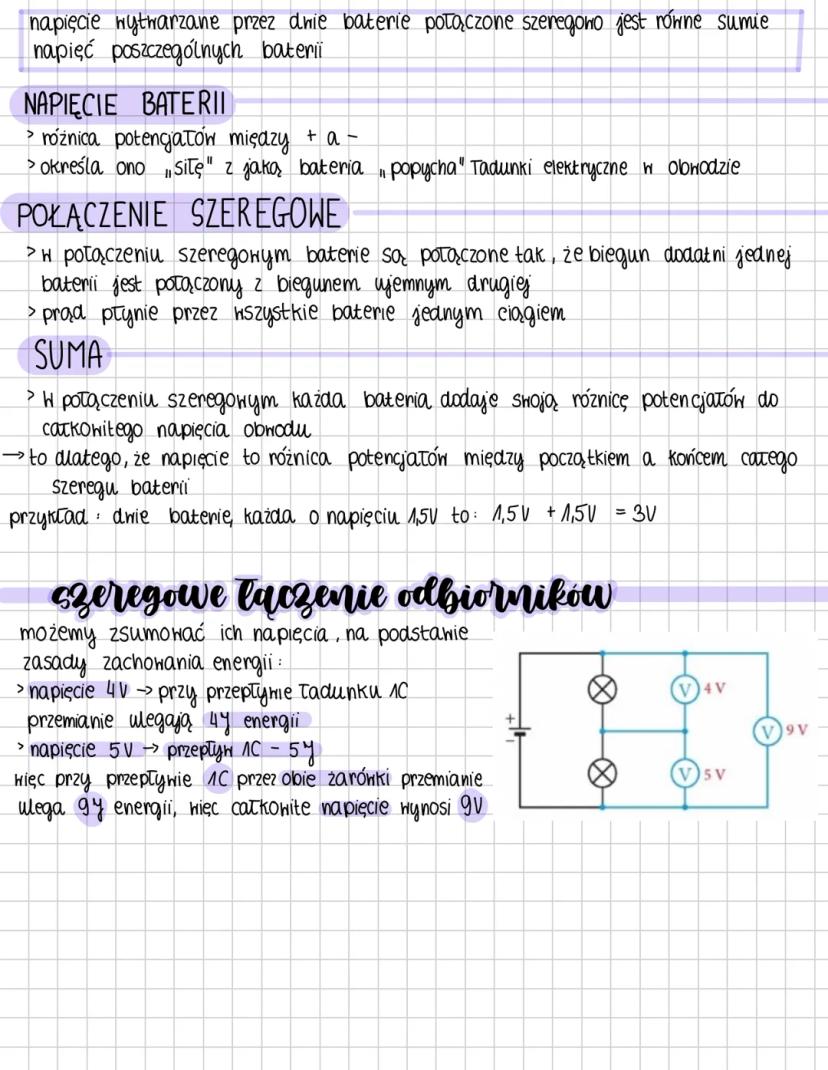 napięcie wytwarzane przez dwie baterie połączone szeregowo jest równe sumie
napięć poszczególnych baterii
NAPIĘCIE BATERII
> różnica potencjałów między + a -
> określa ono „siłę" z jaką bateria „popycha" ładunki elektryczne w obwodzie
POŁĄCZENIE SZEREGOWE
> w połączeniu szeregowym baterie są połączone tak, że biegun dodatni jednej
baterii jest połączony z biegunem ujemnym drugiej
> prąd płynie przez wszystkie baterie jednym ciągiem
SUMA
> W połączeniu szeregowym każda bateria dodaje swoją różnicę potencjałów do
całkowitego napięcia obwodu
→ to dlatego, że napięcie to różnica potencjałów między początkiem a końcem całego
szeregu baterii
przykład : dwie baterie, każda o napięciu 1,5V to: 1,5V + 1,5V = 3V
szeregowe łączenie odbiorników
możemy zsumować ich napięcia, na podstawie
zasady zachowania energii:
> napięcie 4V → przy przepływie ładunku 1C
przemianie ulegają 4J energii
> napięcie 5V → przepływ 1C - 5J
więc przy przepływie 1C przez obie żarówki przemianie
ulega 9J energii, więc całkowite napięcie wynosi 9V
+
-
V 4 V
V 9 V
V 5 V